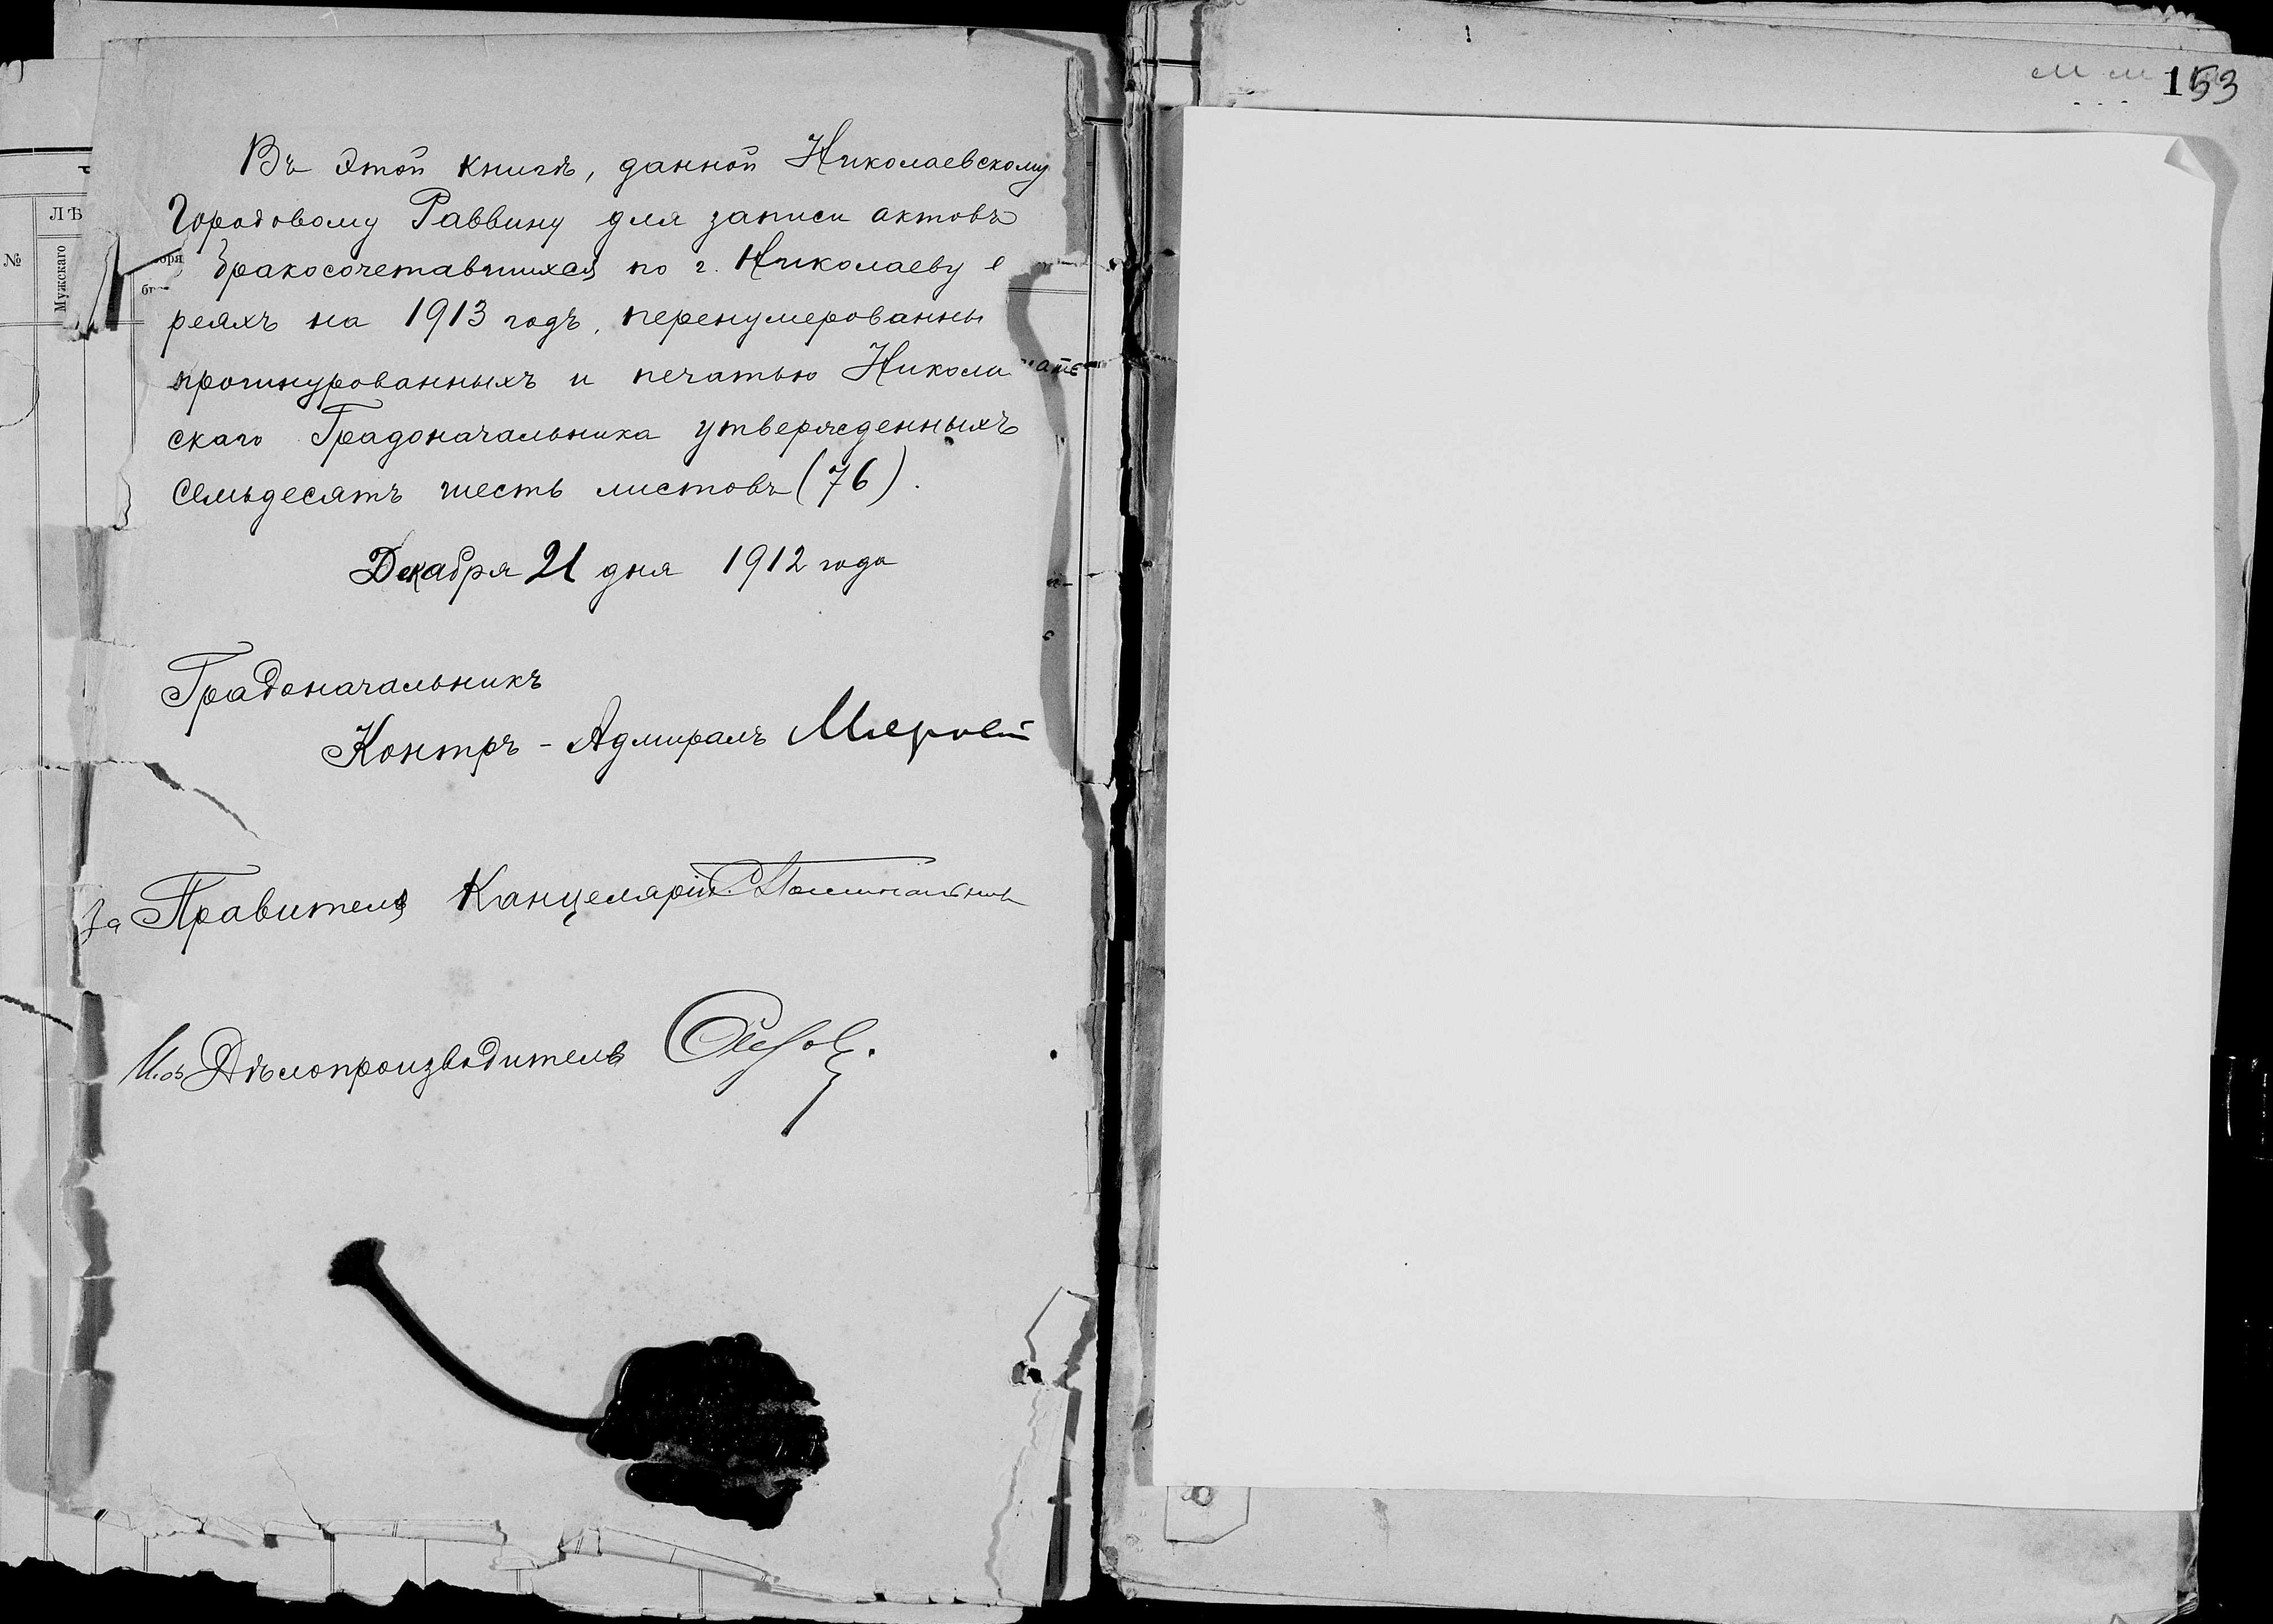 Въ этой книгѣ, данной Николаевскому
Городовому Раввину для записи актовъ
бракосочетавшихся по г. Николаеву е
реяхъ на 1913 годъ, перенумерованны
прошнурованныхъ и печатью Никола
скаго Градоначальника утвержденныхъ
семьдесятъ шесть листовъ (76).
Декабря 21 дня 1912 года
Градоначальникъ
Контръ-Адмиралъ
За Правителя Канцеляріи
И.об. Дѣлопроизводитель
№
ЛѢ
Мужскаго
153